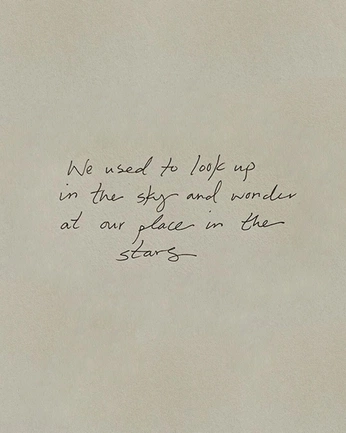 We used to look up
in the sky and wonder
at our place in the
stars